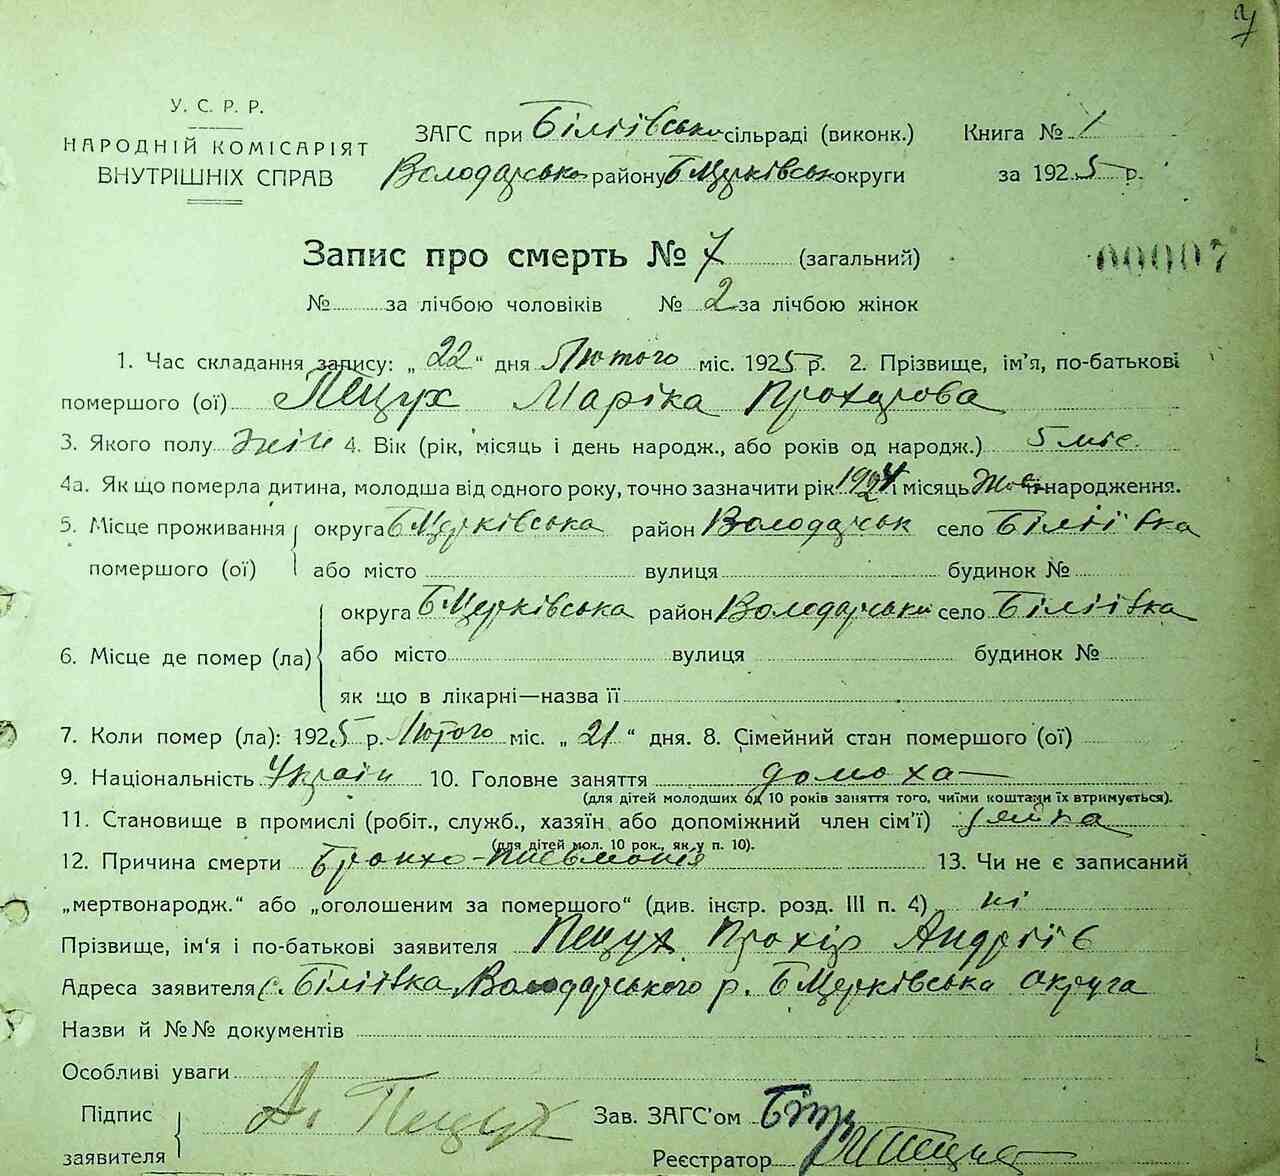 7
У. С. Р. Р.
НАРОДНІЙ КОМІСАРІЯТ
ВНУТРІШНІХ СПРАВ
ЗАГС при Біліївськ сільраді (виконк.)
Володарськ району Б Церківськ округи
Книга № 1
за 1925 р.
Запис про смерть № 7 (загальний)
00007
№ за лічбою чоловіків № 2 за лічбою жінок
1. Час складання запису: „22“ дня Лютого міс. 1925 р. 2. Прізвище, ім’я, по-батькові
помершого (ої) Пецух Маріка Прохорова
3. Якого полу жін 4. Вік (рік, місяць і день народж., або років од народж.) 5 міс.
4а. Як що померла дитина, молодша від одного року, точно зазначити рік 1924 і місяць Жов народження.
5. Місце проживання помершого (ої) округа Б Церківська район Володарськ село Біліївка
або місто вулиця будинок №
6. Місце де помер (ла) округа Б Церківська район Володарськ село Біліївка
або місто вулиця будинок №
як що в лікарні—назва її
7. Коли помер (ла): 1925 р. Лютого міс. „21“ дня. 8. Сімейний стан помершого (ої)
9. Національність Україн 10. Головне заняття
(для дітей молодших од 10 років заняття того, чиїми коштами їх втримується).
11. Становище в промислі (робіт., служб., хазяїн або допоміжний член сім’ї)
(для дітей мол. 10 рок., як у п. 10).
12. Причина смерти Бронхо-пневмонія 13. Чи не є записаний
„мертвонародж.“ або „оголошеним за помершого“ (див. інстр. розд. III п. 4) ні
Прізвище, ім‘я і по-батькові заявителя Пецух Прохір Андріїв
Адреса заявителя с. Біліївка Володарського р. Б Церківська округа
Назви й №№ документів
Особливі уваги
Підпис заявителя А. Пецух
Зав. ЗАГС’ом
Реєстратор